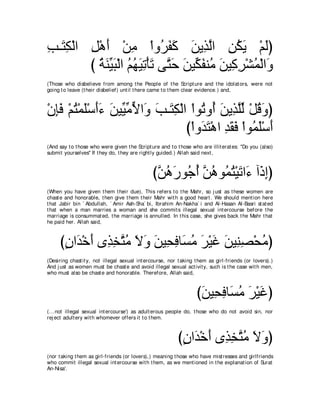 (لَمْ يَكُنِ الَّذِينَ كَفَرُواْ مِنْ أَهْلِ الْكِتَـبِ
وَالْمُشْرِكِينَ مُنفَكِّينَ حَتَّى تَأْتِيَهُمُ الْبَيِّنَةُ )
(Those who disbelieve from among the People of the Scripture and the idolators, were not
going to leave (their disbelief) until there came to them clear evidence.) and,
(وَقُلْ لِّلَّذِينَ أُوتُواْ الْكِتَـبَ وَالاٍّمِّيِّينَ ءَأَسْلَمْتُمْ فَإِنْ
أَسْلَمُواْ فَقَدِ اهْتَدَواْ)
(And say to those who were given the Scripture and to those who are illiterates: "Do you (also)
submit yourselves" If they do, they are rightly guided.) Allah said next,
(إِذَآ ءَاتَيْتُمُوهُنَّ أُجُورَهُنَّ)
(When you have given them their due). This refers to the Mahr, so just as these women are
chaste and honorable, then give them their Mahr with a good heart. We should mention here
that Jabir bin `Abdullah, `Amir Ash-Sha`bi, Ibrahim An-Nakha`i and Al-Hasan Al-Basri stated
that when a man marries a woman and she commits illegal sexual intercourse before the
marriage is consummated, the marriage is annulled. In this case, she gives back the Mahr that
he paid her. Allah said,
(مُحْصِنِينَ غَيْرَ مُسَافِحِينَ وَلاَ مُتَّخِذِى أَخْدَانٍ)
(Desiring chastity, not illegal sexual intercourse, nor taking them as girl-friends (or lovers).)
And just as women must be chaste and avoid illegal sexual activity, such is the case with men,
who must also be chaste and honorable. Therefore, Allah said,
(غَيْرَ مُسَافِحِينَ)
(...not illegal sexual intercourse) as adulterous people do, those who do not avoid sin, nor
reject adultery with whomever offers it to them.
(وَلاَ مُتَّخِذِى أَخْدَانٍ)
(nor taking them as girl-friends (or lovers),) meaning those who have mistresses and girlfriends
who commit illegal sexual intercourse with them, as we mentioned in the explanation of Surat
An-Nisa'.